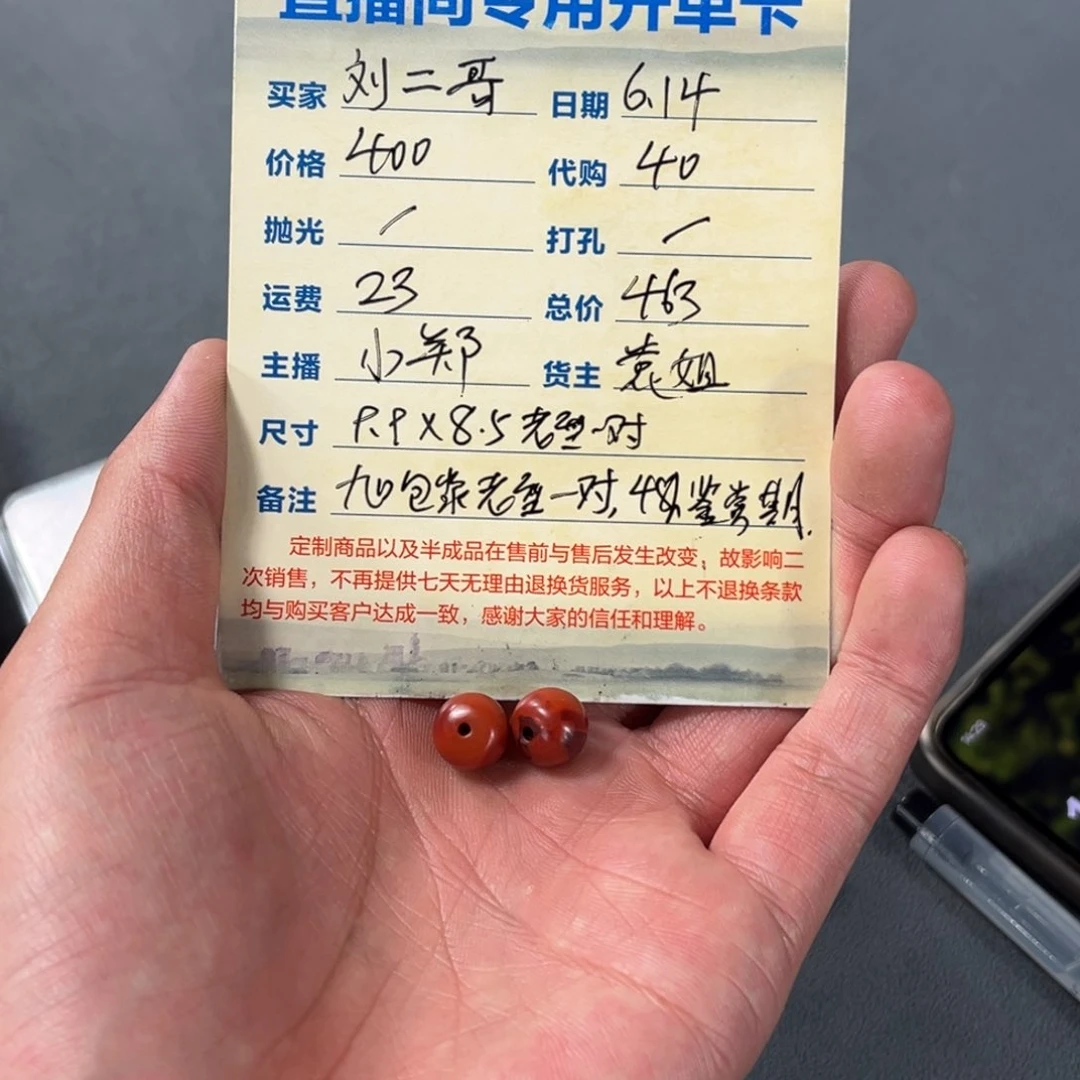 直播间专用开单卡
买家 刘二哥 日期 6.14
价格 400 代购 40
抛光 / 打孔 /
运费 23 总价 463
主播 小郑 货主 袁姐
尺寸 9.9×8.5老型一对
备注 九口包浆老型一对, 48h鉴赏期.
定制商品以及半成品在售前与售后发生改变，故影响二
次销售，不再提供七天无理由退换货服务，以上不退换条款
均与购买客户达成一致，感谢大家的信任和理解。